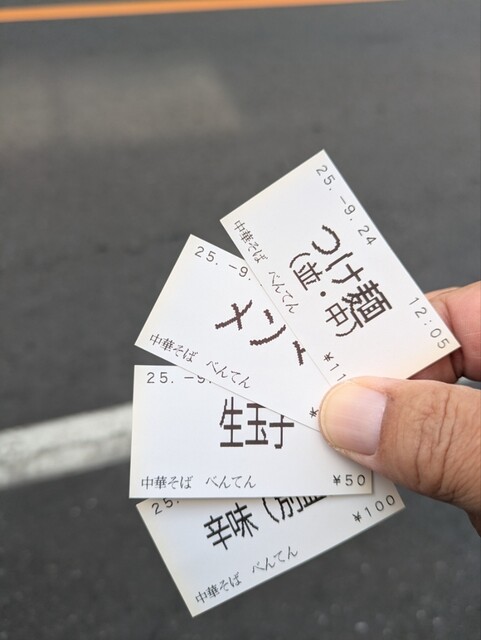 25.-9.24
12:05
つけ麺
(並・中)
中華そば べんてん
¥11
25.-9.
メン
中華そば べんてん
¥
25.-9.
生玉子
中華そば べんてん
¥50
25.
辛味(別
中華そば べんてん
¥100